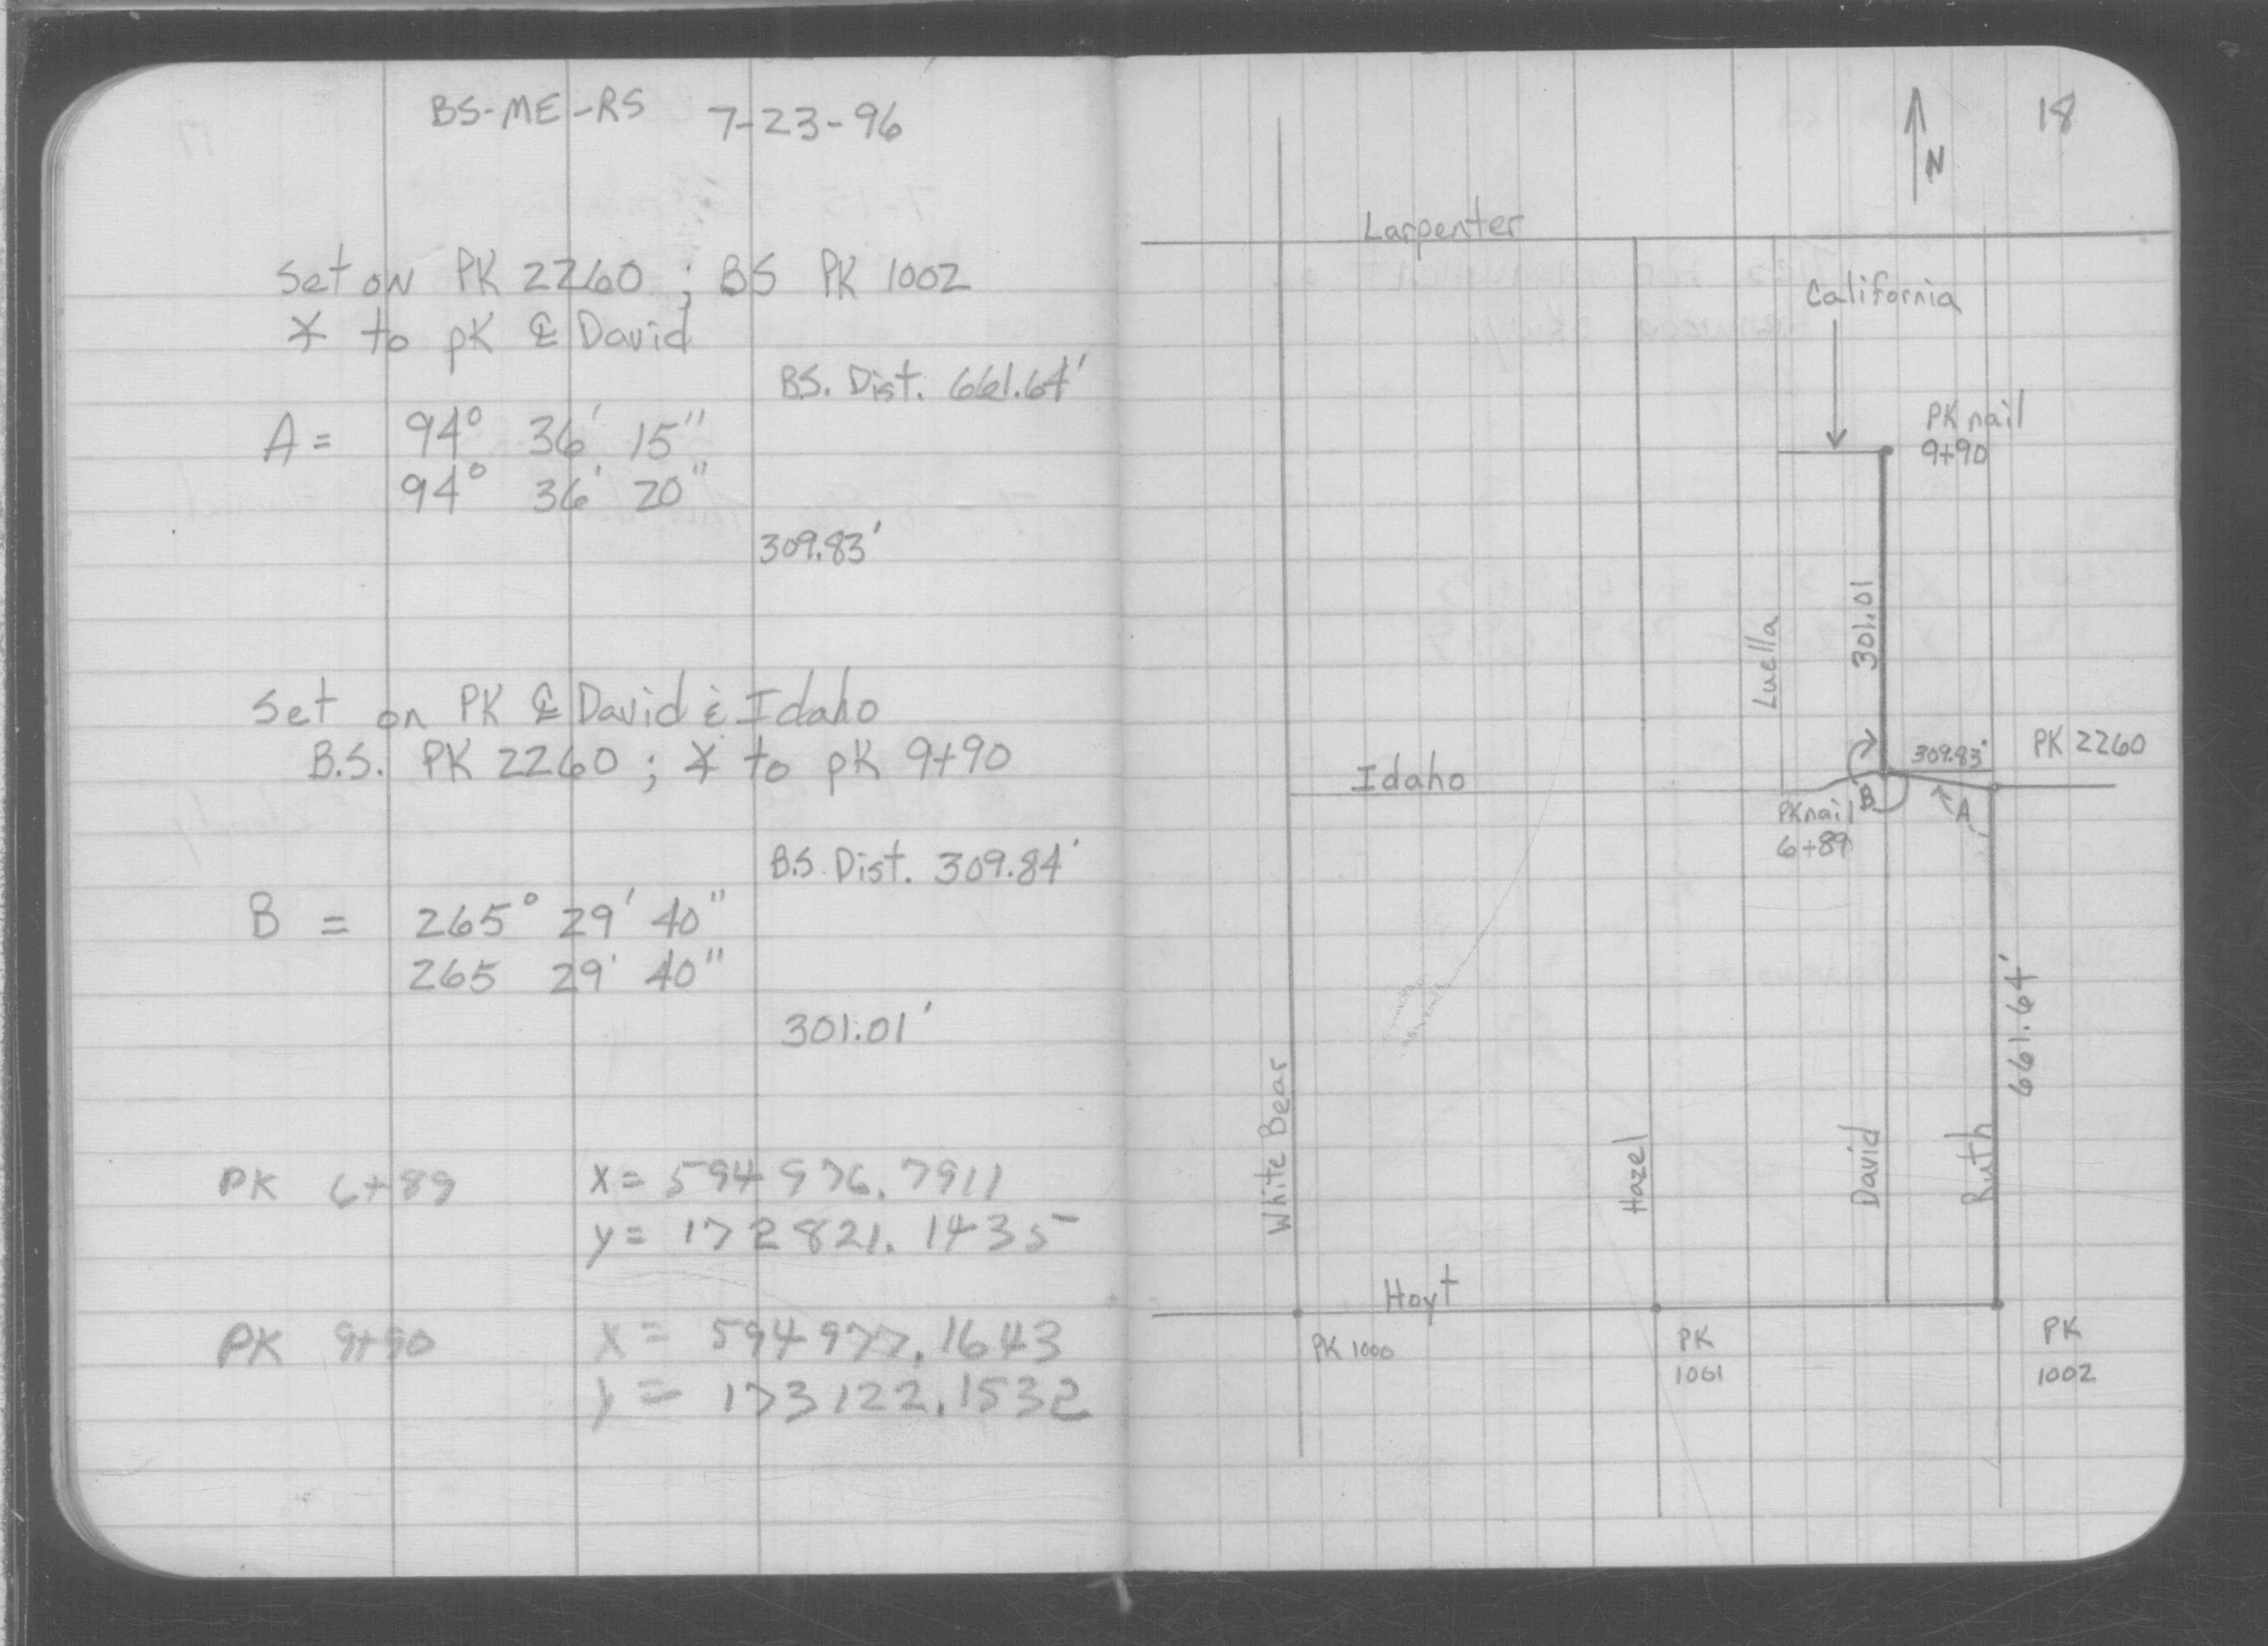 BS-ME-RS 7-23-96
Set on PK 2260 ; BS PK 1002
∠ to pK ℄ David
B.S. Dist. 661.64'
A = 94° 36' 15"
94° 36' 20"
309.83'
Set on PK ℄ David & Idaho
B.S. PK 2260 ; ∠ to pK 9+90
B.S. Dist. 309.84'
B = 265° 29' 40"
265 29' 40"
301.01'
PK 6+89 x = 594976.7911
y = 172821.1435
PK 9+90 x = 594977.1643
y = 173122.1532
18
N
Larpenter
California
PK nail
9+90
301.01
Luella
309.83'
PK 2260
Idaho
B
A
PK nail
6+89
661.64'
White Bear
Hazel
David
Ruth
Hoyt
PK 1000
PK
1001
PK
1002